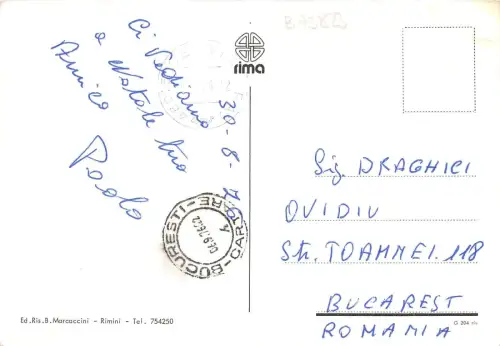 Ci Vediamo
a Natale tuo
Amico
Paolo
30-8-7
rima
BUCURESTI - CARTARE
Sig. DRAGHICI
OVIDIU
Str. TOAMNEI. 118
BUCAREST
ROMANIA
Ed. Ris. B. Marcaccini - Rimini - Tel. 754250